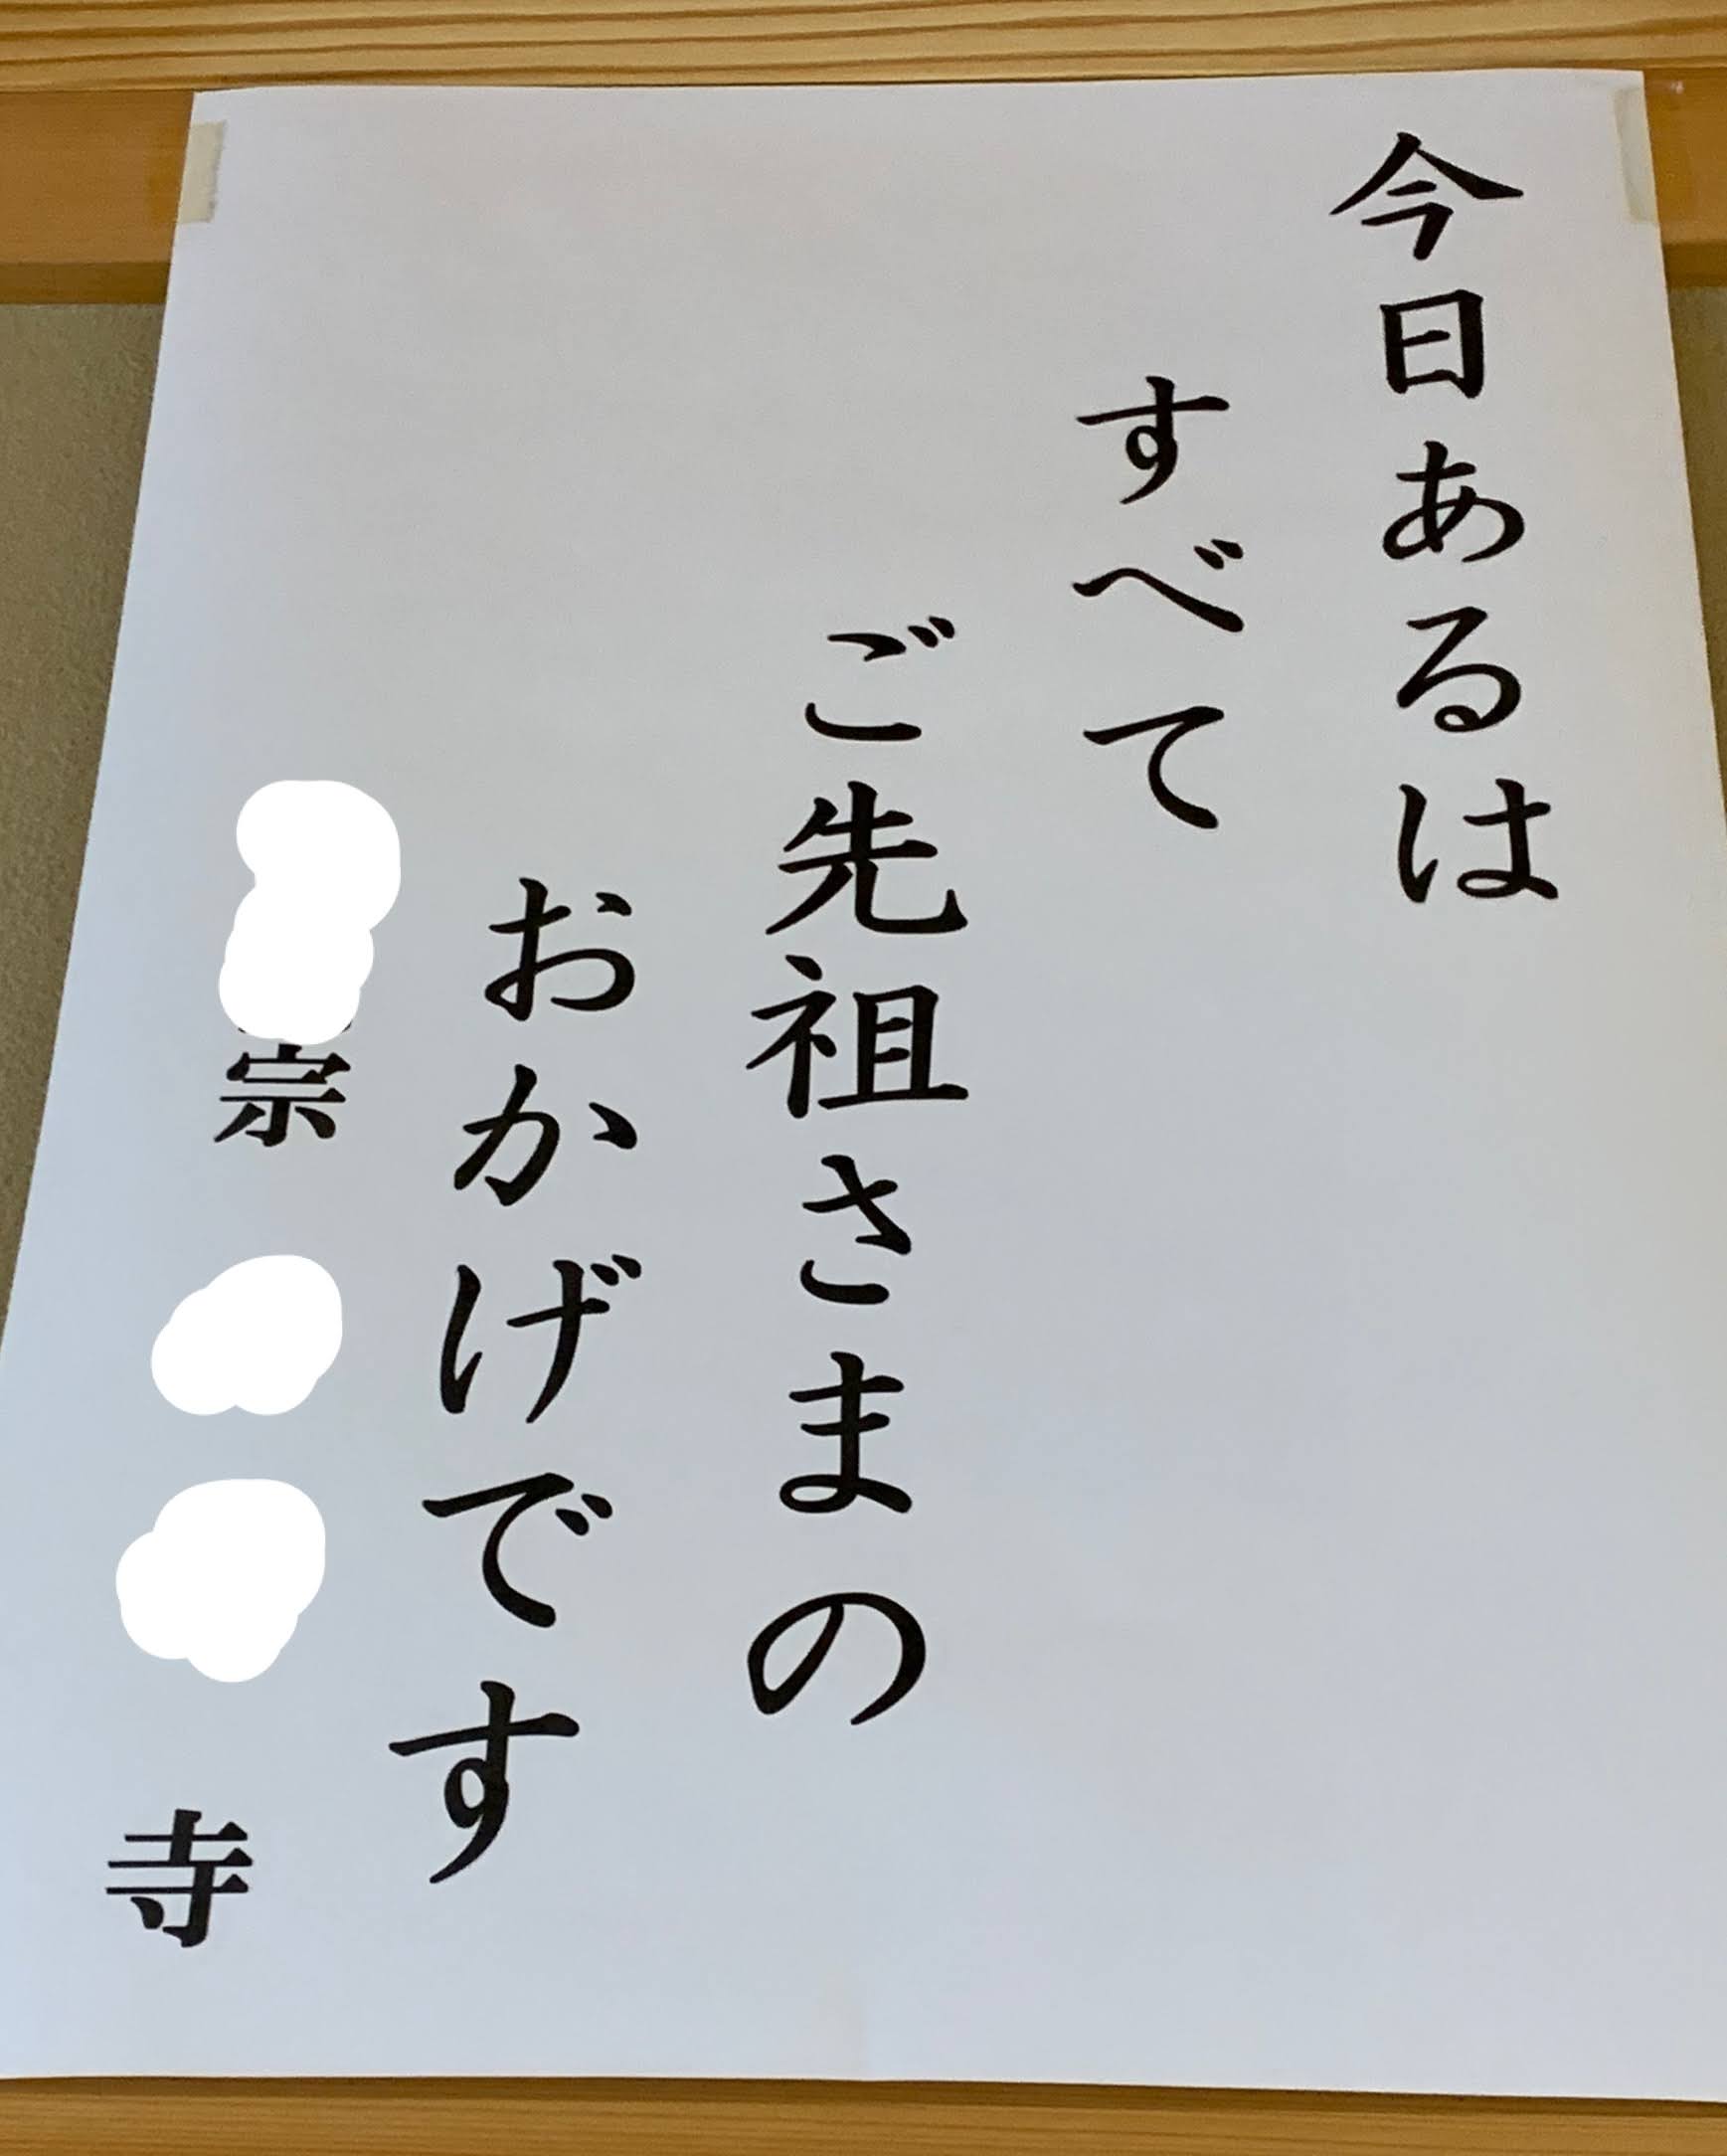 今日あるは
すべて
ご先祖さまの
おかげです
宗 寺